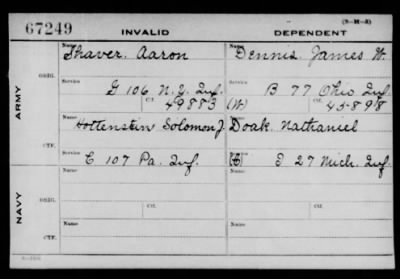 67249 INVALID DEPENDENT (3-M-3)
ARMY
ORIG.
Name Shaver, Aaron Name Dennis, James W.
Service G 106 N.Y. Inf. Service B 77 Ohio Inf.
Ctf. 49883 (W) Ctf. 45898
CTF.
Name Hottenstein Solomon J. Name Doak, Nathaniel
Service C 107 Pa. Inf. Service I 27 Mich. Inf.
NAVY
ORIG.
Name Name
Ctf. Ctf.
CTF.
Name Name